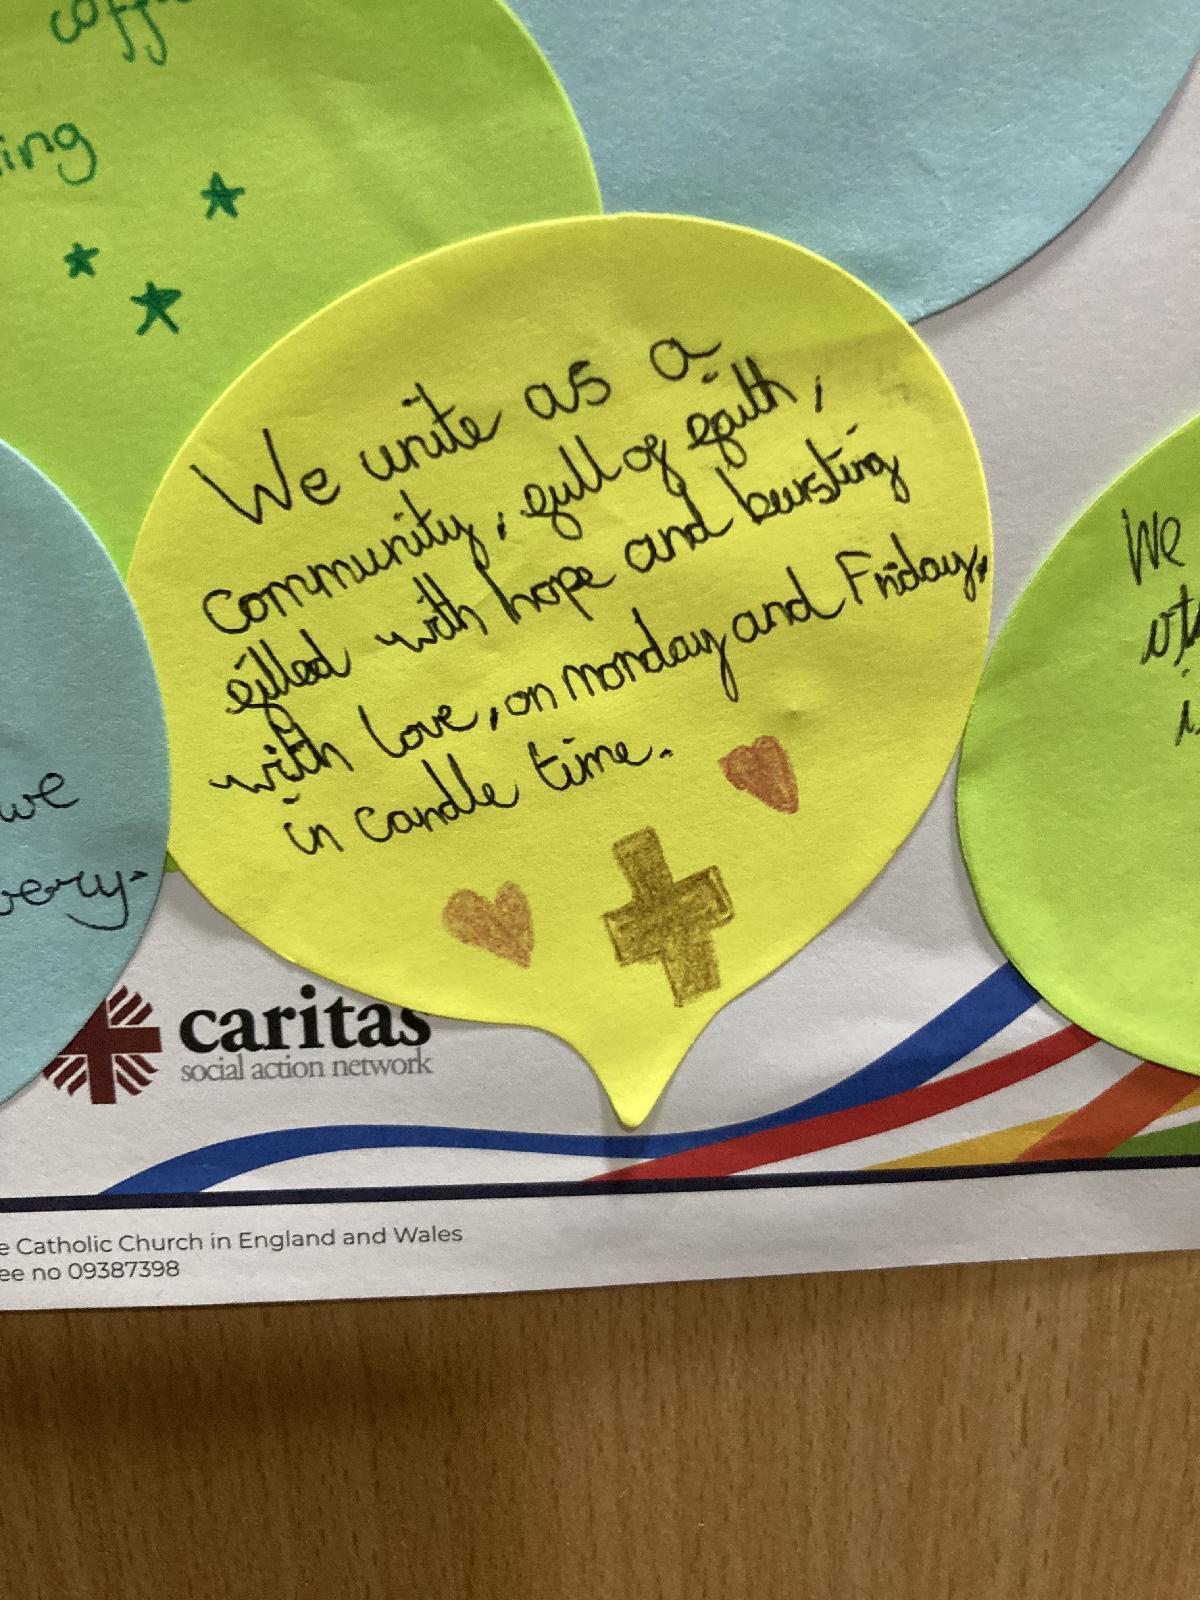 ing
We unite as a
community, full of faith,
filled with hope and bursting
with love, on monday and Friday,
in candle time.
we
very.
We
caritas
social action network
e Catholic Church in England and Wales
ee no 09387398